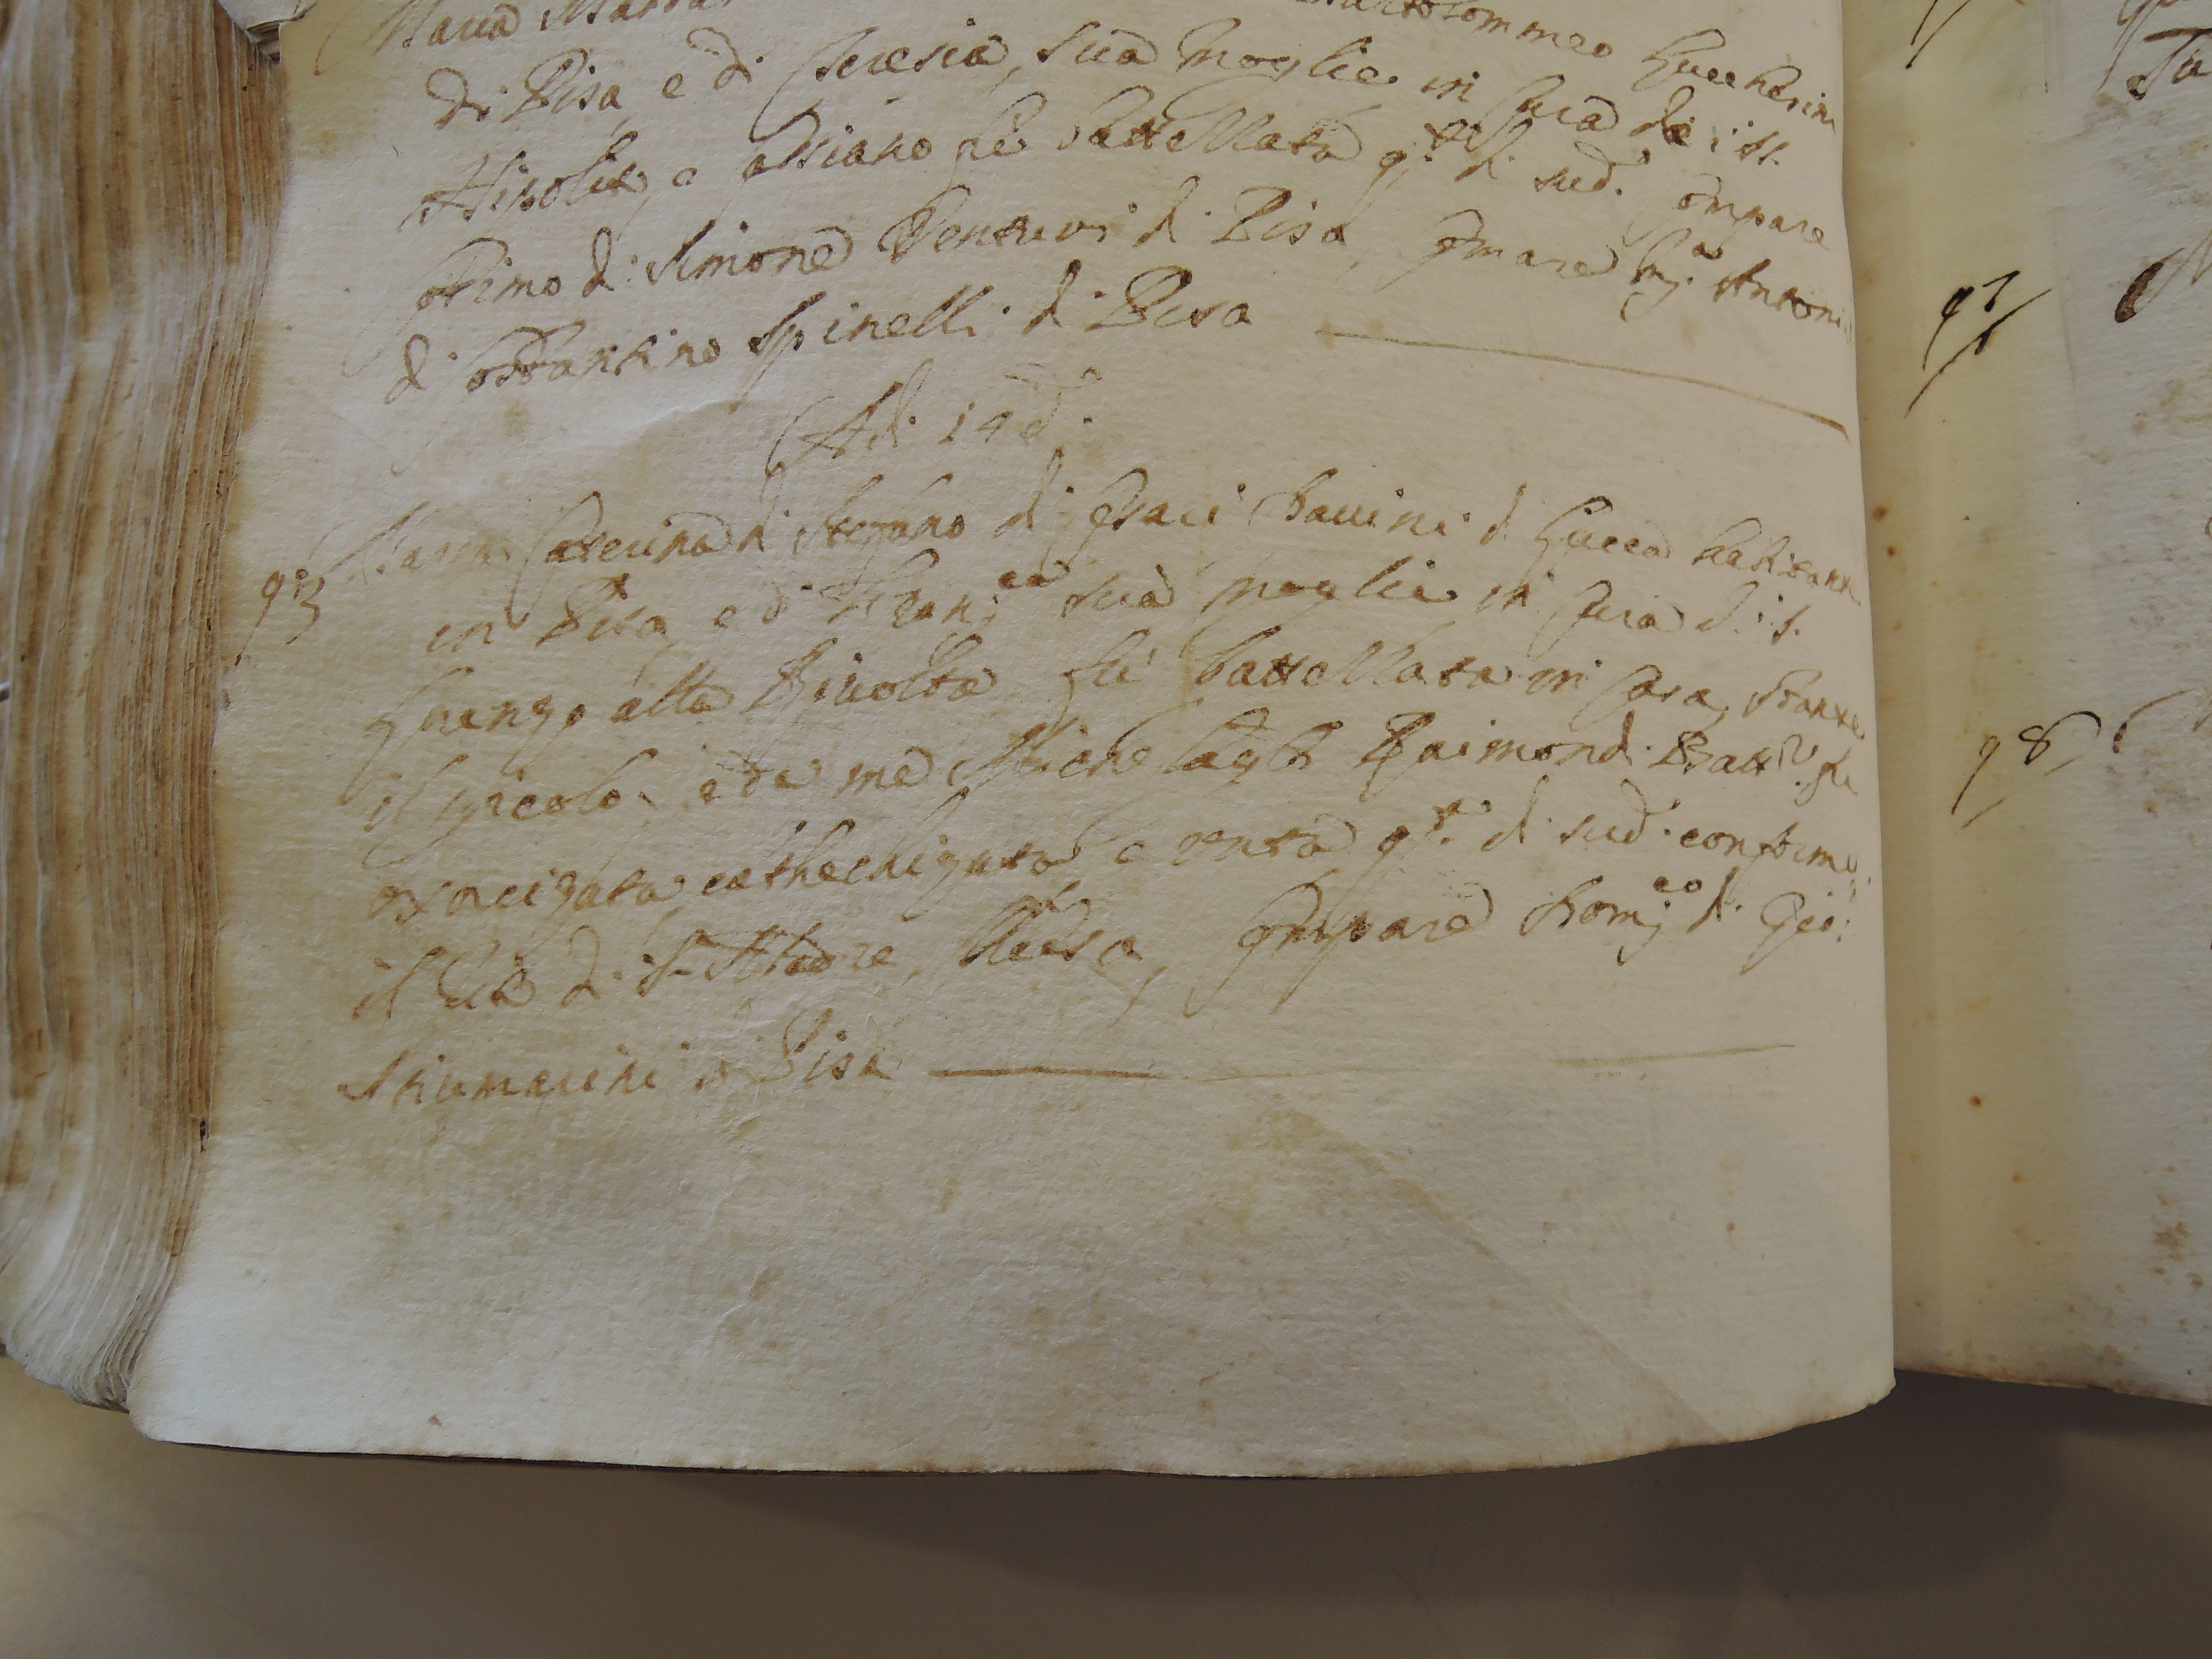 Maria
Bartolommeo Lucchesini
di Pisa, e di Teresia, sua moglie in Cura de i SS.
Hipolito, e Cassiano fù battezzata q.to dì sud. Compare
Primo di Simone Venturi di Pisa, Comare M.a Antonia
di Costantino Spinelli di Pisa
Adi 14 d.
93
Maria Caterina di Stefano di Bauini di Lucca habitante
in Pisa, e di Fran.ca sua moglie in Cura di S.
Lorenzo alla Rivolta fù battezzata in Casa, stante
il pericolo, e da me Michelag.lo Raimondi Batt.re fù
exorcizata, cathechizata e unta q.to dì sud. conforme
il Rito di S. Madre Chiesa, Compare Dom.co di Gio:
di Pisa
97
98